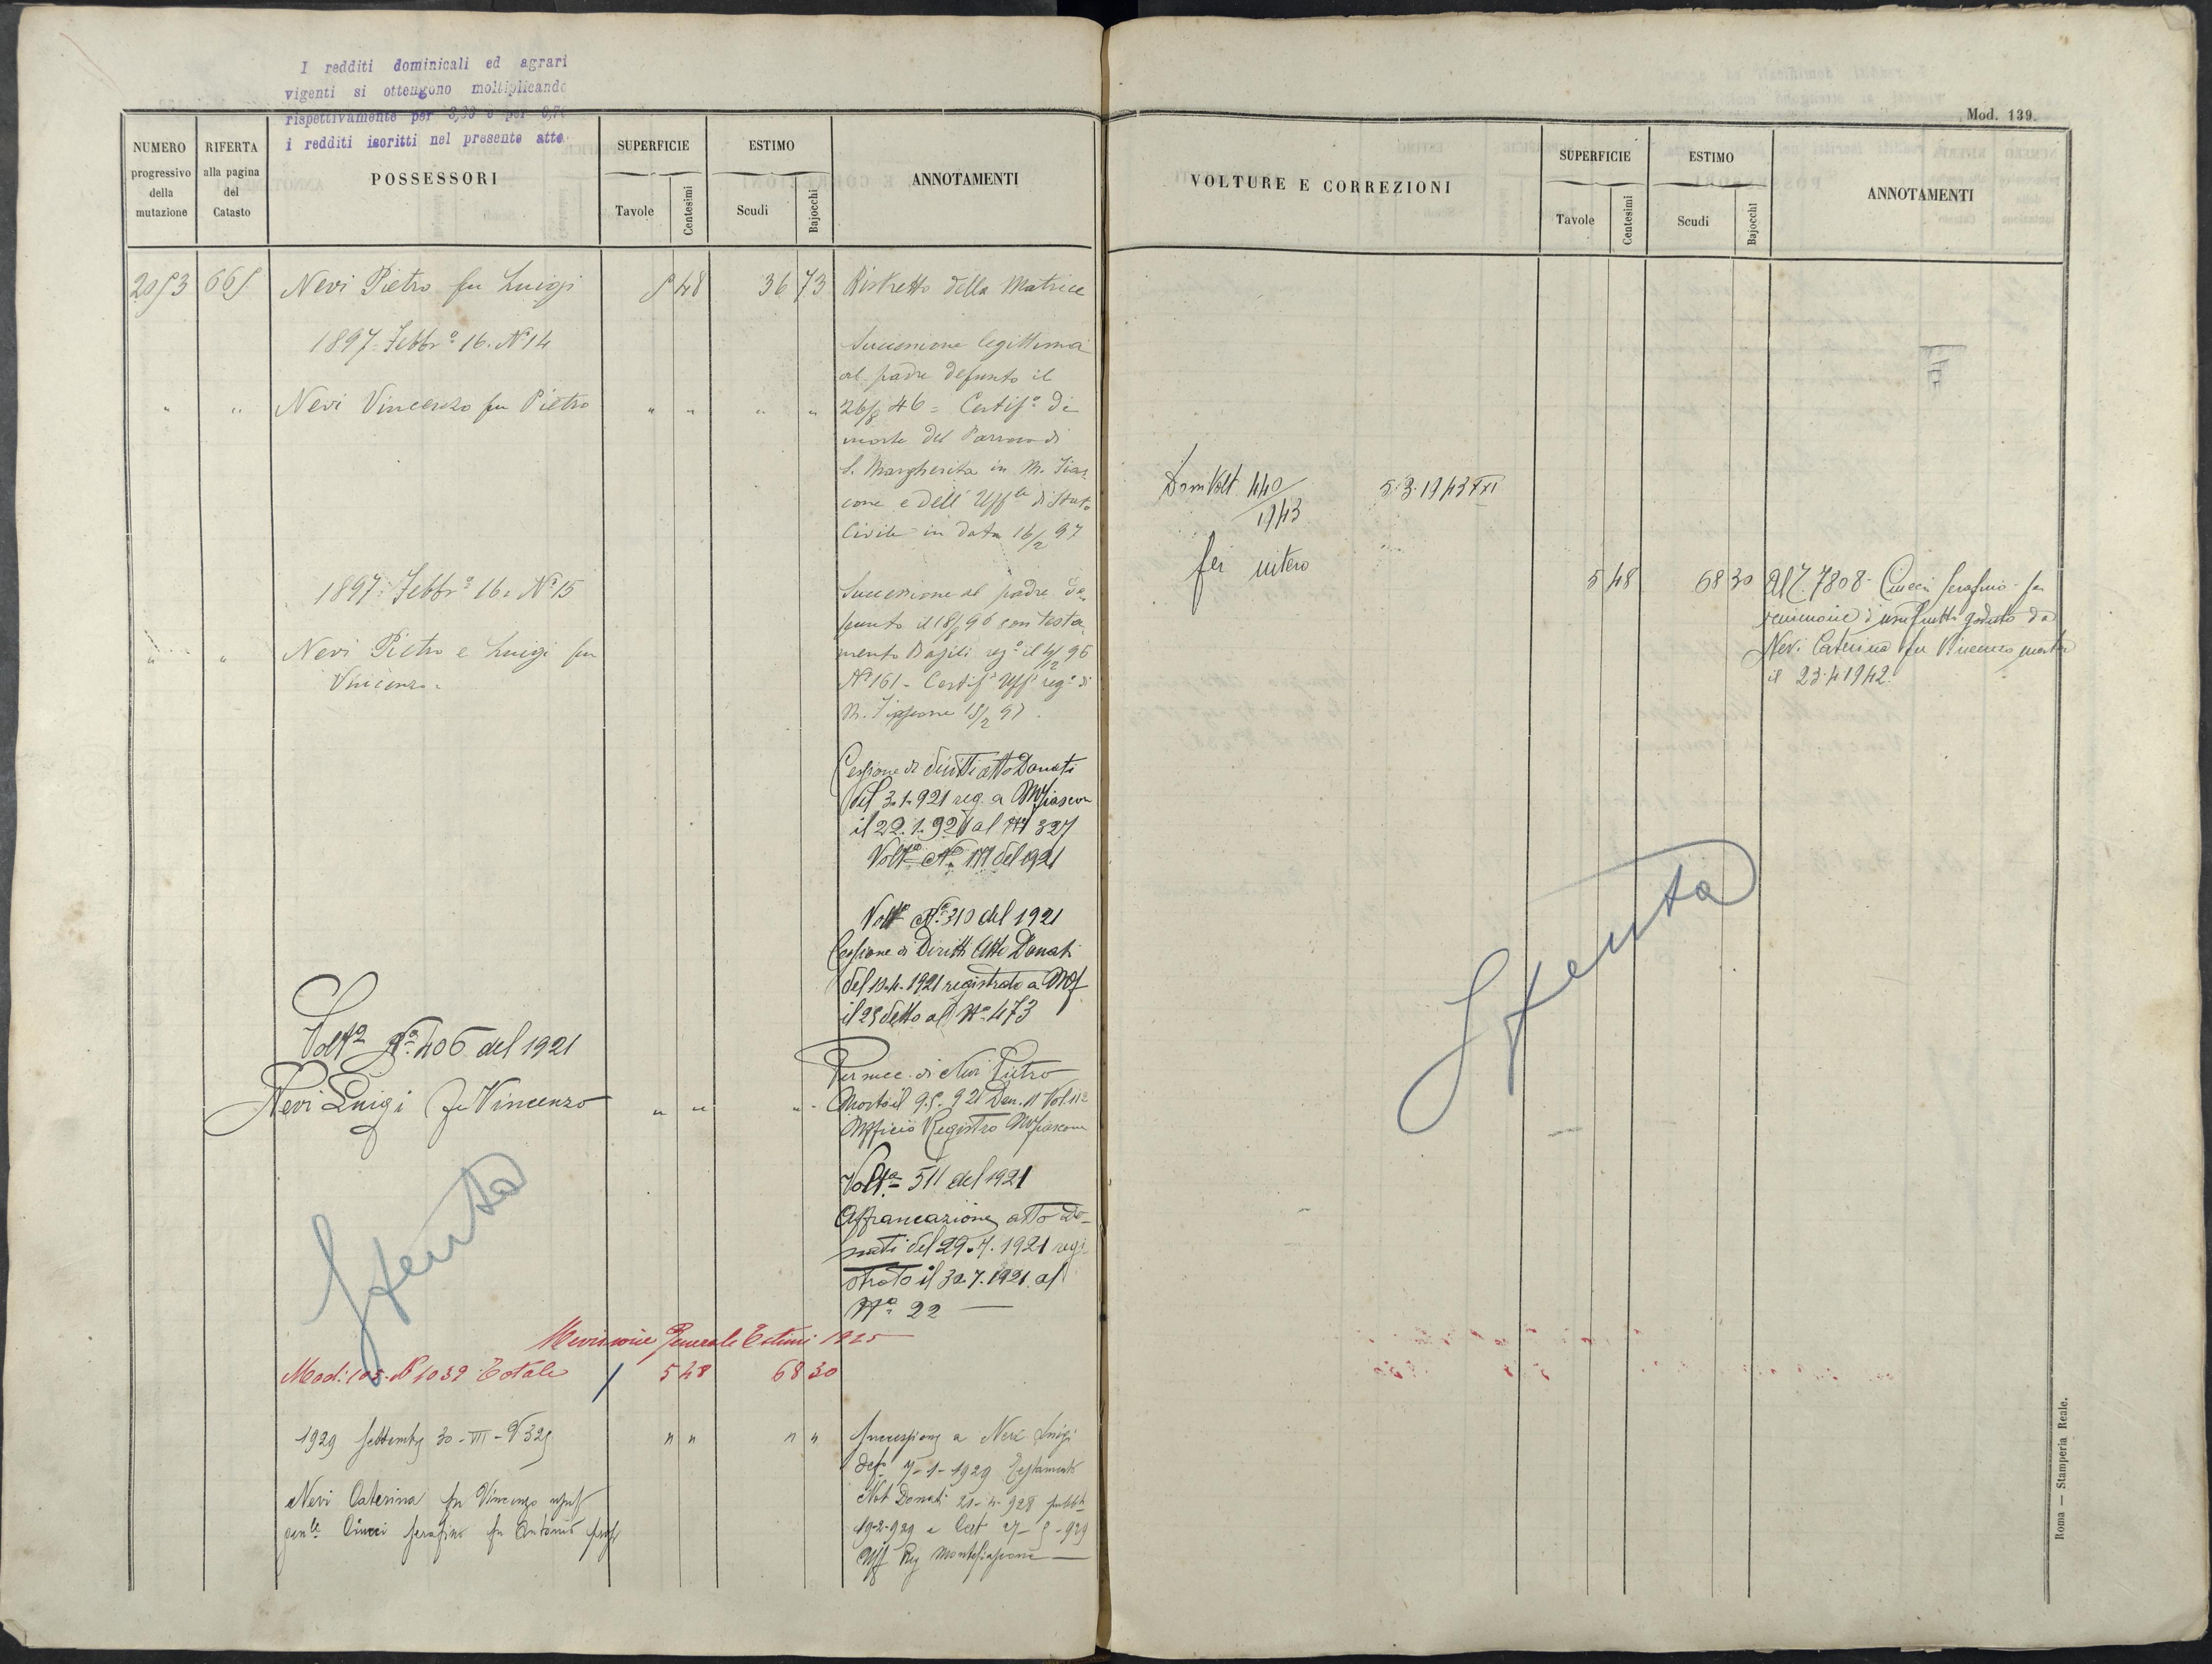 I redditi dominicali ed agrari
vigenti si ottengono moltiplicando
rispettivamente per 3,33 e per 0,70
i redditi iscritti nel presente atto
Mod. 139.
NUMERO progressivo della mutazione
RIFERTA alla pagina del Catasto
POSSESSORI
SUPERFICIE
Tavole
Centesimi
ESTIMO
Scudi
Bajocchi
ANNOTAMENTI
VOLTURE E CORREZIONI
SUPERFICIE
Tavole
Centesimi
ESTIMO
Scudi
Bajocchi
ANNOTAMENTI
2053 665 Nevi Pietro fu Luigi 5 48 36 73 Ristretto della Matrice
1897 Febbro 16. No 14
Successione legittima
al padre defunto il
" " Nevi Vincenzo fu Pietro " " " " 26/8 46 = Certifo di
morte del Parroco di
S. Margherita in M. Fias
cone e dell' Uffle di Stato
Civile in data 16/2 97
1897 Febbro 16. No 15
Successione al padre de
funto il 18/ 96 con testa
mento Bagili rego il 4/2 96
" " Nevi Pietro e Luigi fu
Vincenzo
No 161 - Certifo Uffo rego di
M. Fiascone 15/2 97.
Cessione di diritti atto Donati
del 3.1.921 reg. a Mfiascon
il 22.1.921 al No 327
Volta No 171 del 1921
Volta No 310 del 1921
Cessione di Diritti Atto Donati
del 10.4.1921 registrato a Mf
il 25 detto al No 473
Volta No 406 del 1921
Nevi Luigi fu Vincenzo " " " "
Per succ. di Nevi Pietro
Morto il 9.5.921 Den. 11 Vol. 112
Ufficio Registro Mfiascone
Volta 511 del 1921
Affrancazione atto Do-
nati del 29.7.1921 regi
strato il 30.7.1921 al
No 22
Spenta
Revisione Generale Estimi 1925
Mod: 105. N 1039 Totale 5 48 68 30
1929 Settembre 30 - VII - N 325 " " " "
Successione a Nevi Luigi
def 7-1-1929 Testamento
Not Donati 21-4-928 pubbto
19-2-929 e Cert 27-5-929
Uff Reg Montefiascone
Nevi Caterina fu Vincenzo usuf
genle Ciucci Serafino fu Antonio prop
Dom Volt 440/1943 5.3.1943 XXI
per intero
5 48 68 30 All. 7808 Ciucci Serafino per
riunione d'usufrutto goduto da
Nevi Caterina fu Vincenzo morta
il 23.4.1942.
Spenta
Roma — Stamperia Reale.